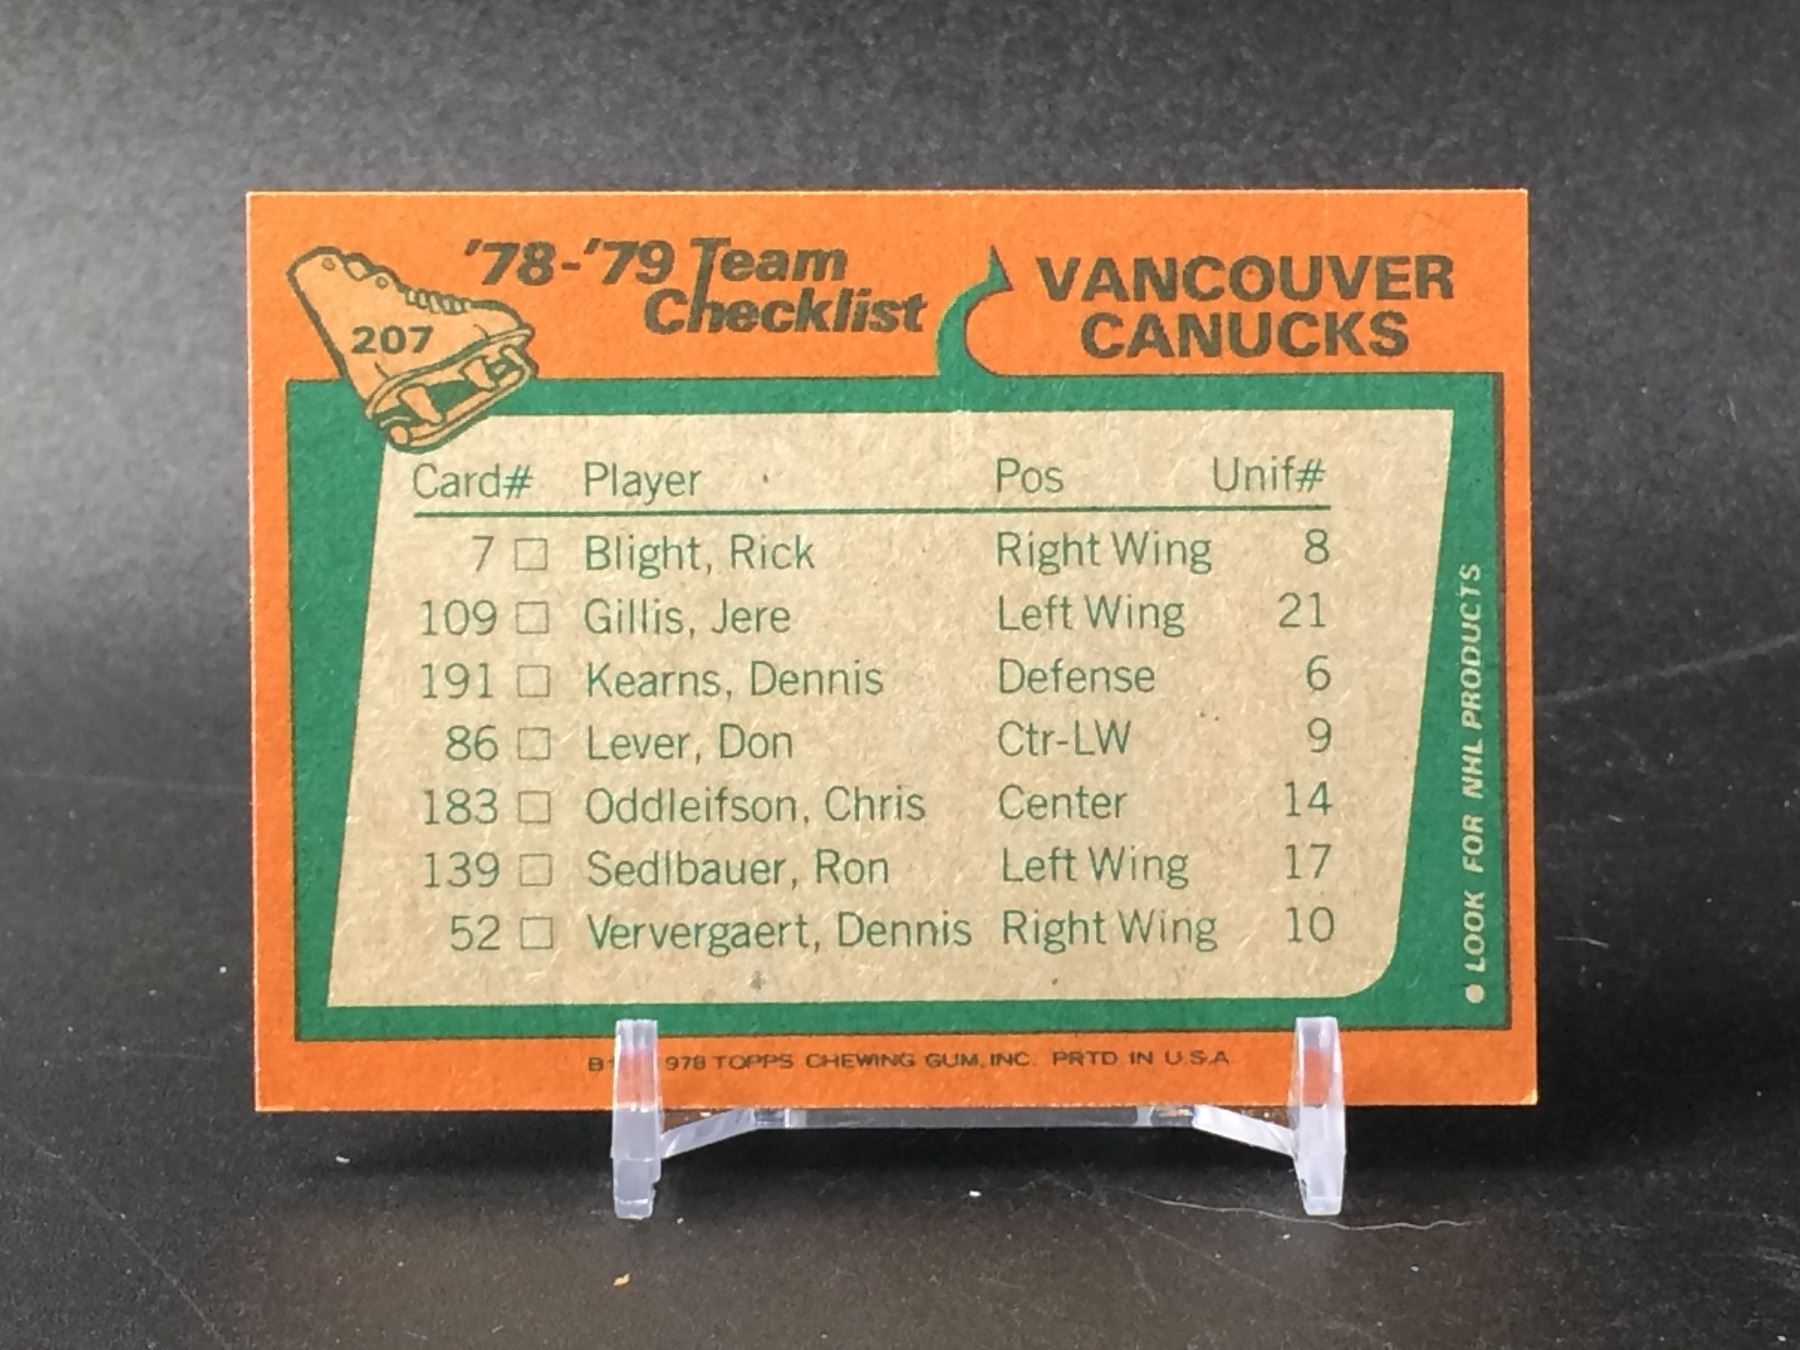 '78-'79 Team
Checklist
VANCOUVER
CANUCKS
207
Card# Player Pos Unif#
7 □ Blight, Rick Right Wing 8
109 □ Gillis, Jere Left Wing 21
191 □ Kearns, Dennis Defense 6
86 □ Lever, Don Ctr-LW 9
183 □ Oddleifson, Chris Center 14
139 □ Sedlbauer, Ron Left Wing 17
52 □ Ververgaert, Dennis Right Wing 10
● LOOK FOR NHL PRODUCTS
978 TOPPS CHEWING GUM, INC. PRTD IN U.S.A.